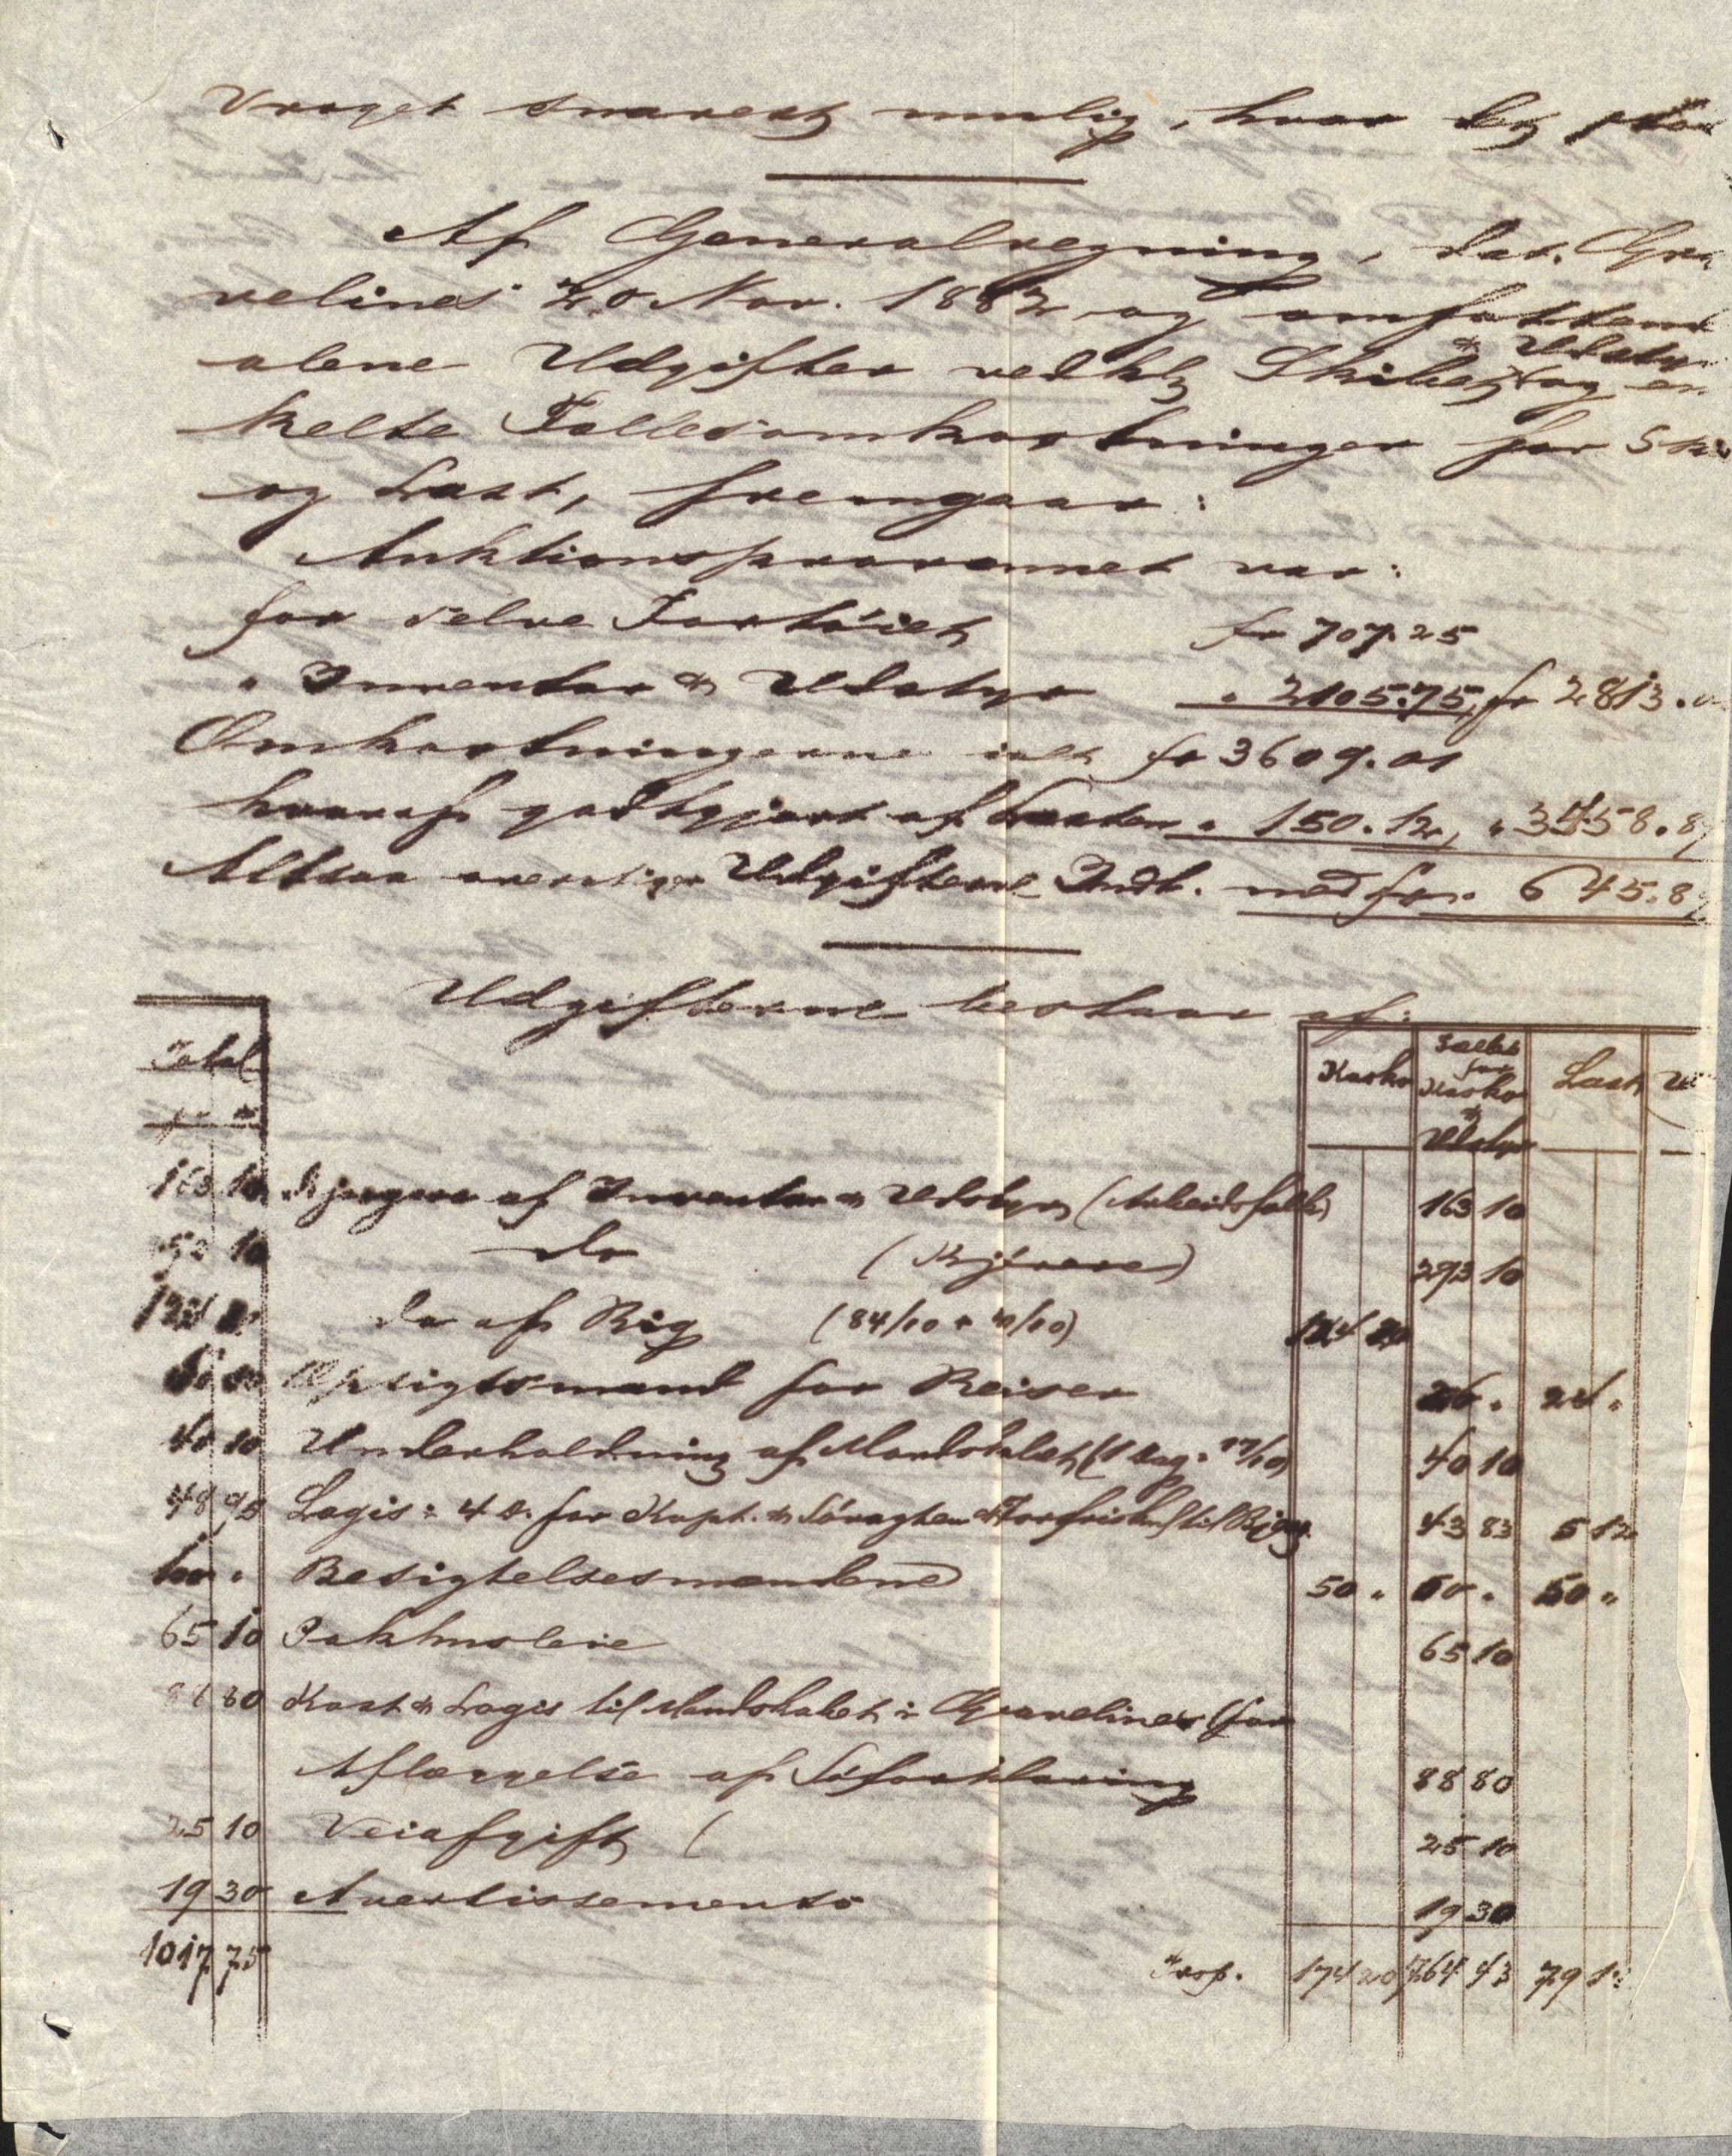 Vraget snarest mulig, hvor det
Af Generalregning, dat. Gra
velines 20 Nov. 1882 og omfattend
& Udsty
alene Udgifter vedk. Skibet og en
kelte Fællesomkostninger for Ski
og Last, fremgaar:
Auktionsprovenuet var:
for selve Fartöiet fr 707.25
" Inventar & Udstyr " 2105.75, fr 2813.
Omkostningerne ialt fr 3609.01
hvoraf godtgjort af Lasten " 150.12, " 3458.89
Altsaa overstiger Udgifterne Indt. med fr. 645.89
Udgifterne bestaar af:
Total Kasko Fælles for Kasko & Udstyr Last
163 10 Bjergere af Inventar & Udstyr (Arbeidsfolk) 163 10
10 do (Kjörere) 293 10
do af Rig (84/10 + 40/10) 124 20
Opsigtsmand for Reiser 24 "
40 10 Underholdning af Mandskabet (1 Dag 40 10
48 95 Logis: 4 d. for Kapt. & til 43 83 5 12
Besigtelsesmændene 50 " 50 " 50 "
65 10 Pakhusleie 65 10
88 80 Kost & Logis til Mandskabet i Gravelines (for
Aflæggelse af Söforklaring 88 80
25 10 Veiafgift ( 25 10
19 30 Avertissements 19 30
1017 75 Trsp. 174 20 764 43 79 12